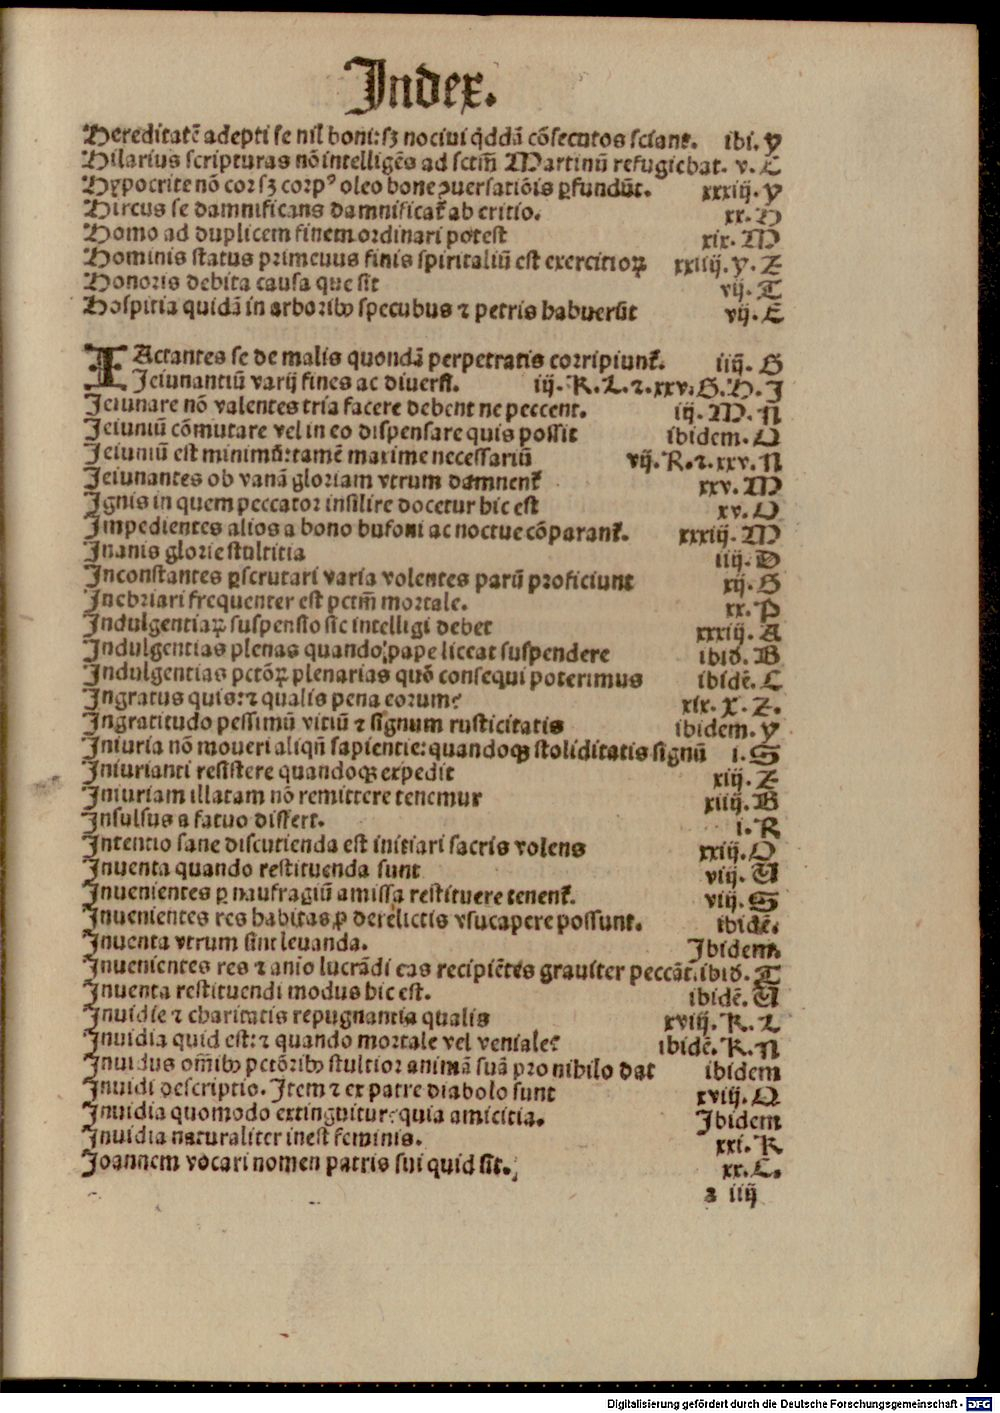 Index.
Hereditatē adepti se nil boni: sȝ nociui q̇ddā cōsecutos sciant. ibi. Y
Hilarius scripturas nō intelligēs ad sctm̄ Martinū refugiebat. v. C
Hypocrite nō cor sȝ corpꝰ oleo bone ꝯuersatiōis ꝑfundūt. xxxiij. Y
Hircus se damnificans damnificat᷑ ab critio. xx. H
Homo ad duplicem finem ordinari potest xix. M
Hominis status primeuus finis spiritaliū est exercitioꝝ xxiiij. Y. Z
Honoris debita causa que sit vij. T
Hospitia quidā in arboribꝫ specubus ⁊ petris habuerūt vij. E
IActantes se de malis quondā perpetratis corripiunt᷑. iiij. G
Ieiunantiū varij fines ac diuersi. iij. K. L. ⁊. xxv. G. H. I
Ieiunare nō valentes tria facere debent ne peccent. iij. M. N
Ieiuniū cōmutare vel in eo dispensare quis possit ibidem. O
Ieiuniū est minimū: tamē maxime necessariū vij. K. ⁊. xxv. N
Ieiunantes ob vanā gloriam vtrum damnent᷑ xxv. M
Ignis in quem peccator insilire docetur hic est xv. O
Impedientes alios a bono bufoni ac noctue cōparant᷑. xxxiij. M
Inanis glorie stultitia iiij. D
Inconstantes ꝑscrutari varia volentes parū proficiunt xij. G
Inebriari frequenter est pctm̄ mortale. xx. P
Indulgentiaꝝ suspensio sic intelligi debet xxxiij. A
Indulgentias plenas quando pape liceat suspendere ibid. B
Indulgentias pctōꝝ plenarias quō consequi poterimus ibidē. C
Ingratus quis: ⁊ qualis pena eorum? xix. X. Z.
Ingratitudo pessimū vitiū ⁊ signum rusticitatis ibidem. Y
Iniuria nō moueri aliqn̄ sapientie: quandoqꝫ stoliditatis signū i. S
Iniurianti resistere quandoqꝫ expedit xiij. Z
Iniuriam illatam nō remittere tenemur xiiij. B
Insulsus a fatuo differt. i. R
Intentio sane discutienda est initiari sacris volens xxiij. O
Inuenta quando restituenda sunt viij. U
Inuenientes ꝑ naufragiū amissa restituere tenent᷑. viij. S
Inuenientes res habitas ꝓ derelictis vsucapere possunt. ibidē.
Inuenta vtrum sint leuanda. Ibidem.
Inuenientes res ⁊ anio lucrādi eas recipiētes grauiter peccāt. ibid. T
Inuenta restituendi modus hic est. ibidē. U
Inuidie ⁊ charitatis repugnantia qualis xviij. K. L
Inuidia quid est: ⁊ quando mortale vel veniale? ibidē. K. N
Inuidus om̄ibꝫ pctōribꝫ stultior animā suā pro nihilo dat ibidem
Inuidi descriptio. Item ⁊ ex patre diabolo sunt xviij. O
Inuidia quomodo extinguitur: quia amicitia. Ibidem
Inuidia naturaliter inest feminis. xxi. K
Joannem vocari nomen patris sui quid sit. xx. C.
a iiij
Digitalisierung gefördert durch die Deutsche Forschungsgemeinschaft - DFG